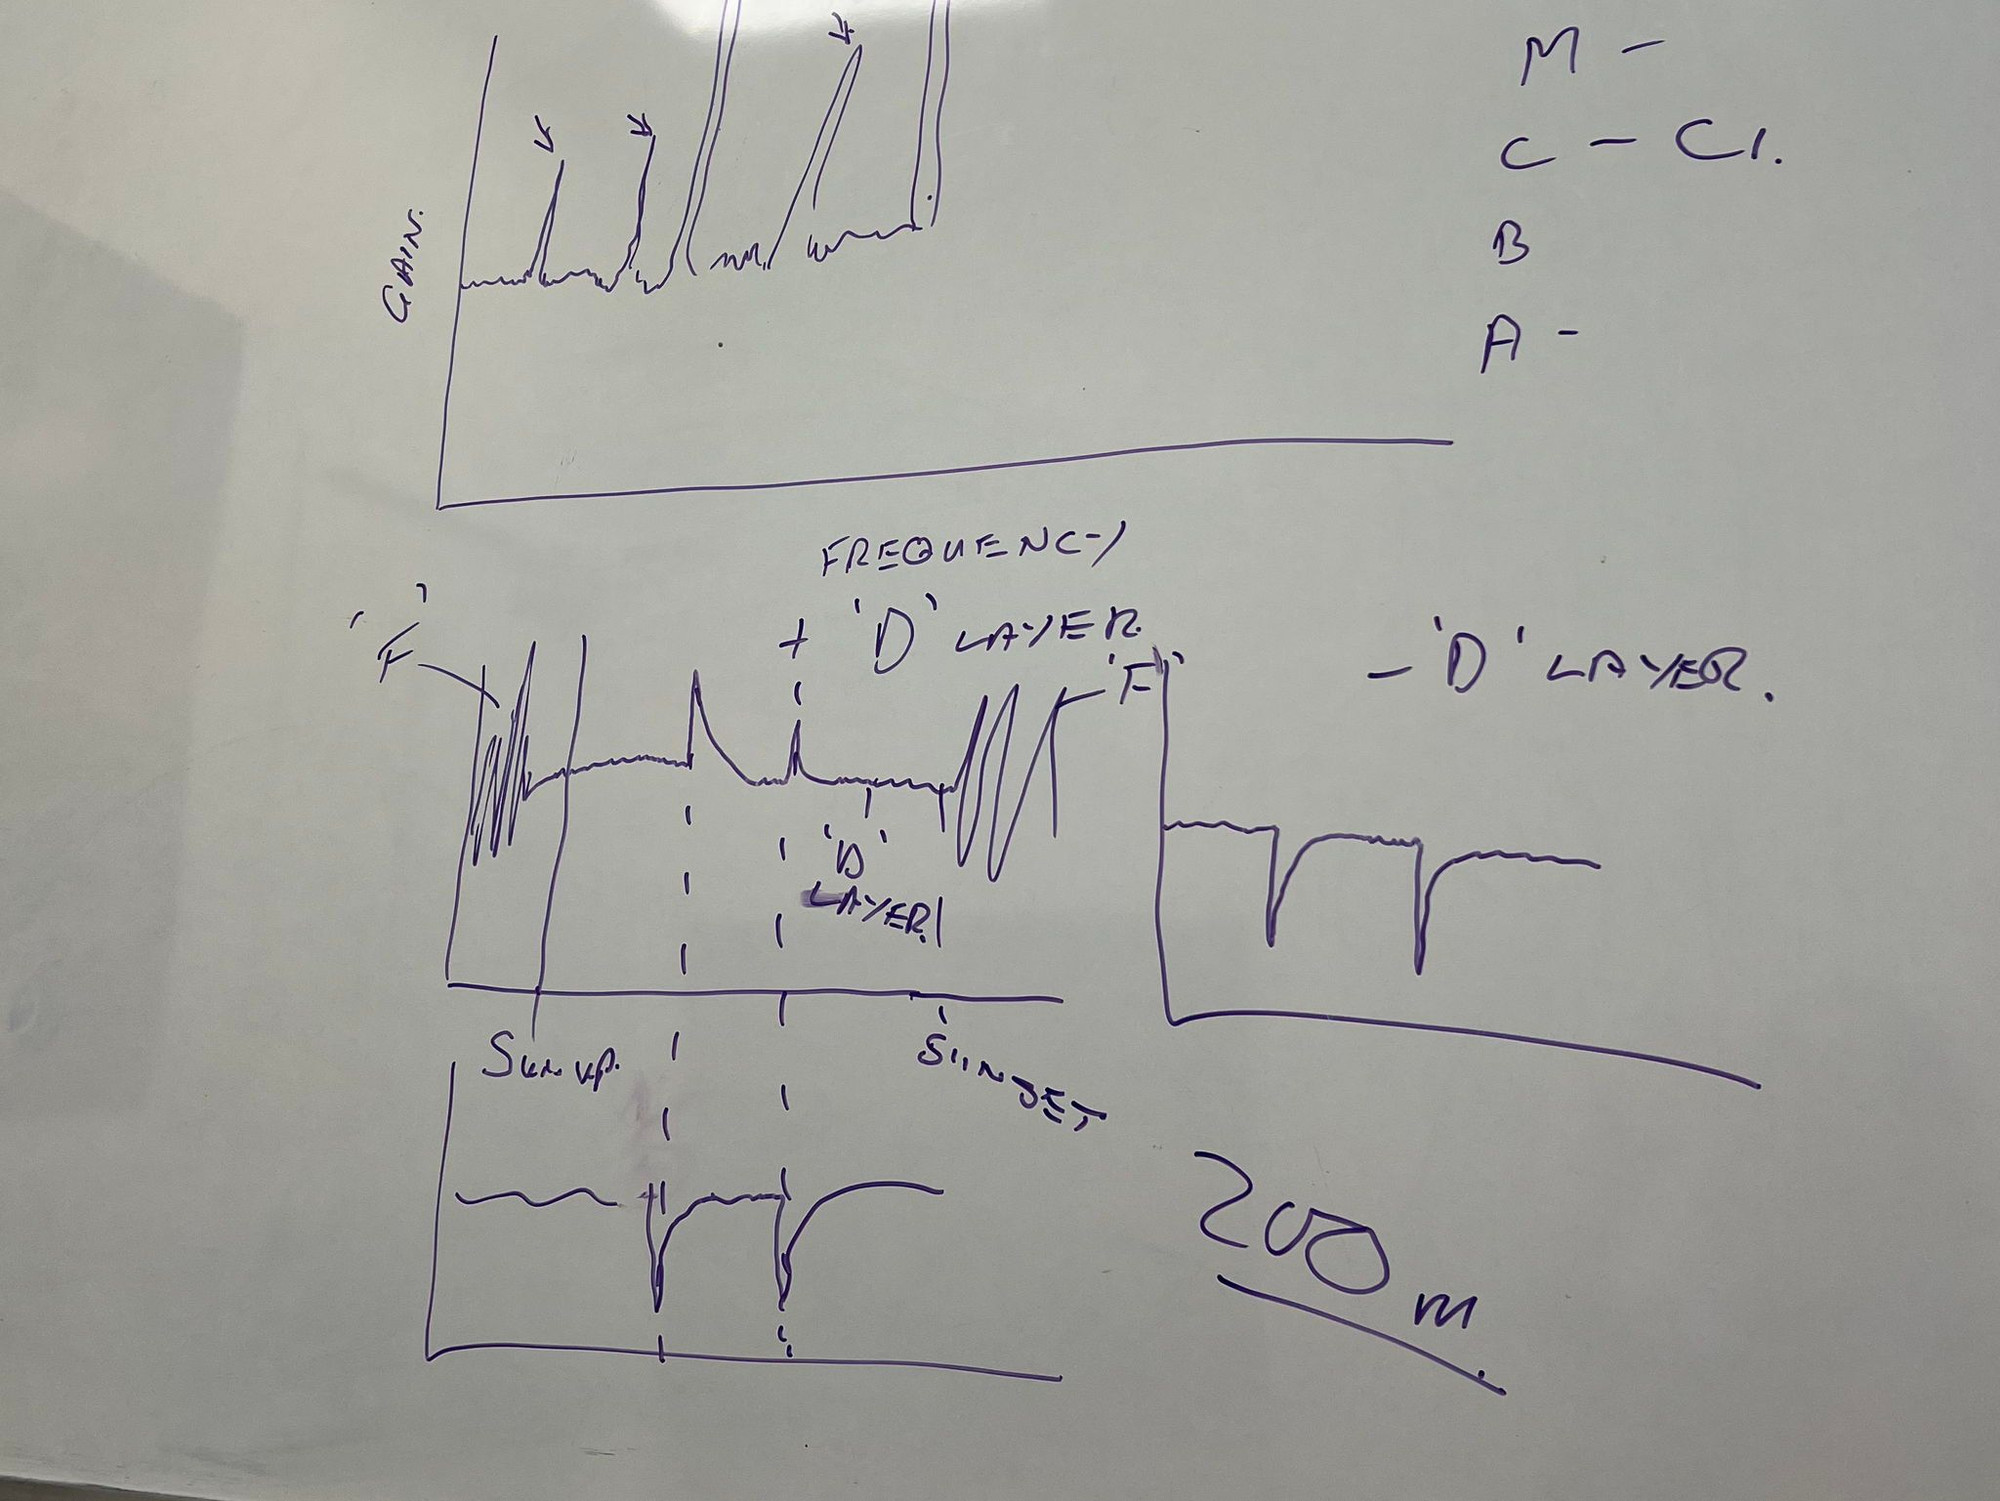 M -
C - C1.
B
A -
GAIN.
FREQUENCY
'F'
+ 'D' LAYER.
'F'
- 'D' LAYER.
'D'
LAYER
Sun up.
SUNSET
200 m